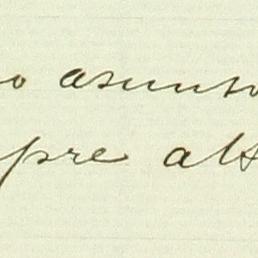 o asunto
pre als